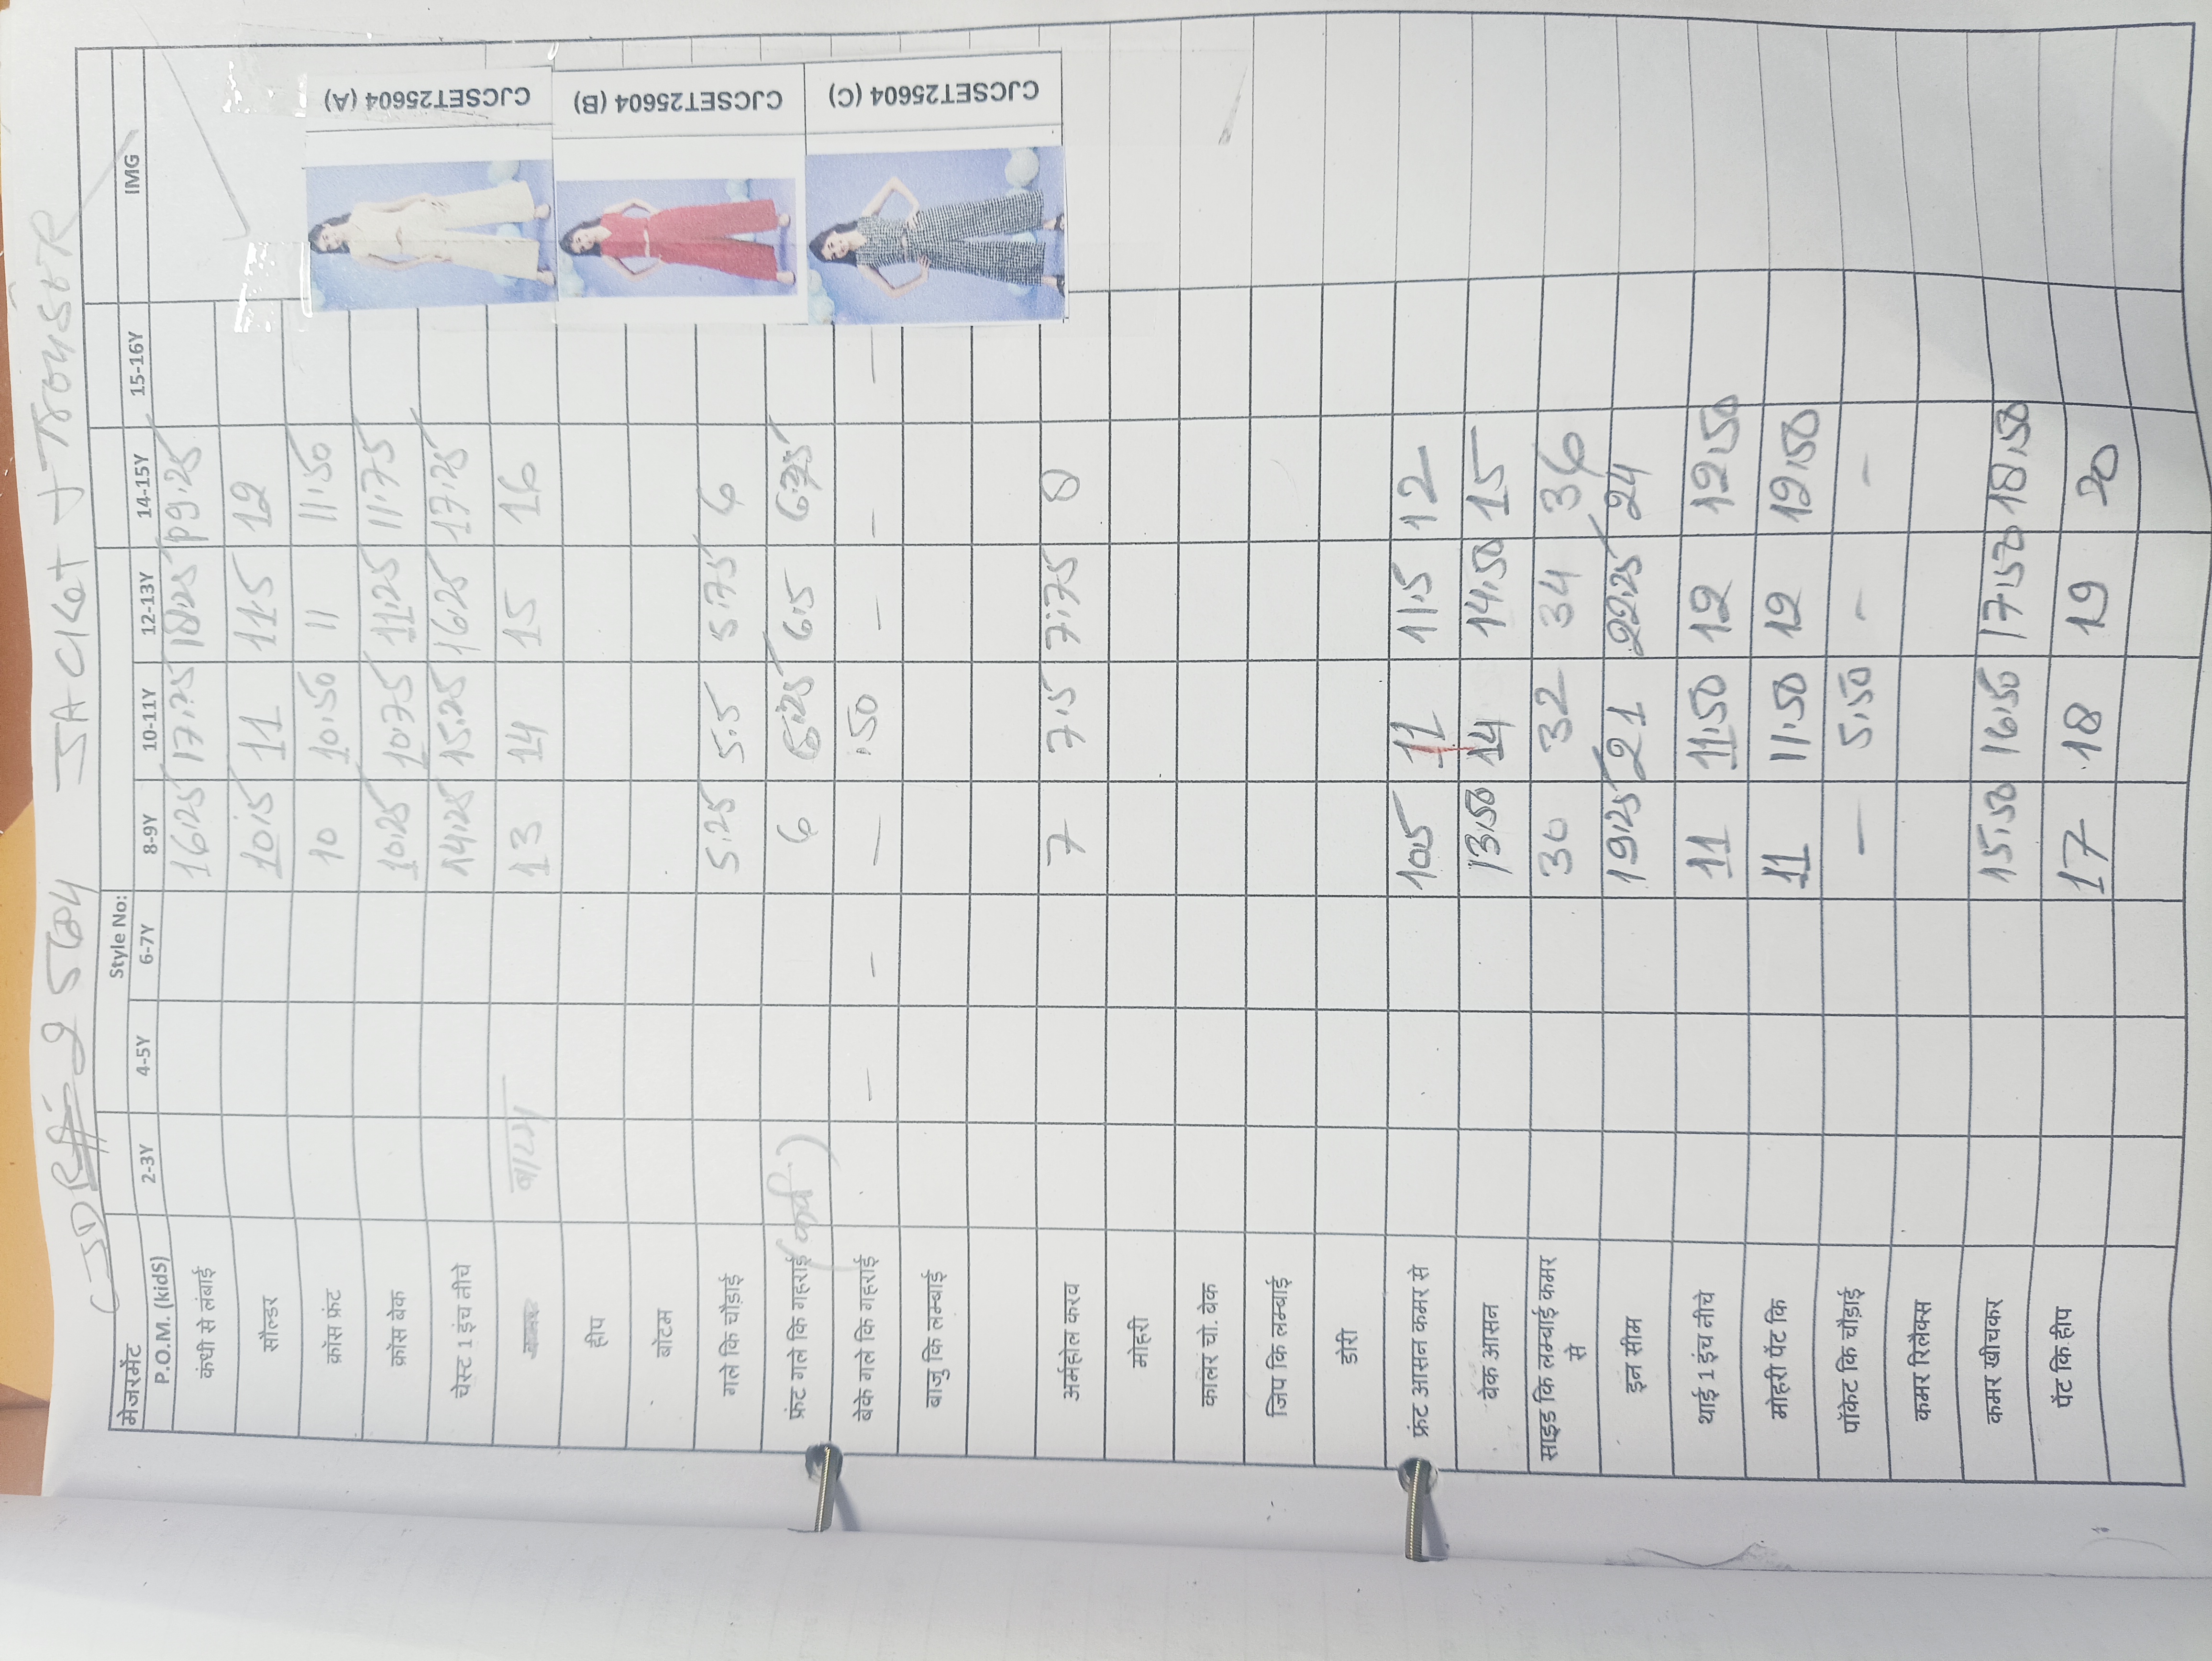 25604 JACKET + TROUSER
मेजरमेंट Style No: IMG
P.O.M. (kidS) 2-3Y 4-5Y 6-7Y 8-9Y 10-11Y 12-13Y 14-15Y 15-16Y
कंधी से लंबाई 16.25 17.25 18.25 19.25
सौल्डर 10.5 11 11.5 12
क्रॉस फ्रंट 10 10.50 11 11.50
क्रॉस बेक 10.25 10.75 11.25 11.75
चेस्ट 1 इंच नीचे 14.25 15.25 16.25 17.25
13 14 15 16
हीप
बॉटम
गले कि चौड़ाई 5.25 5.5 5.75 6
फ्रंट गले कि गहराई 6 6.25 6.5 6.75
बेके गले कि गहराई - - - .50 - - -
बाजु कि लम्बाई
अर्महोल करव 7 7.5 7.75 8
मोहरी
कालर चो. बेक
जिप कि लम्बाई
डोरी
फ्रंट आसन कमर से 10.5 11 11.5 12
बेक आसन 13.50 14 14.50 15
साइड कि लम्बाई कमर से 30 32 34 36
इन सीम 19.25 21 22.25 24
थाई 1 इंच नीचे 11 11.50 12 12.50
मोहरी पेंट कि 11 11.50 12 12.50
पॉकेट कि चौड़ाई - 5.50 - -
कमर रिलैक्स
कमर खीचकर 15.50 16.50 17.50 18.50
पेंट कि हीप 17 18 19 20
CJCSET25604 (A)
CJCSET25604 (B)
CJCSET25604 (C)